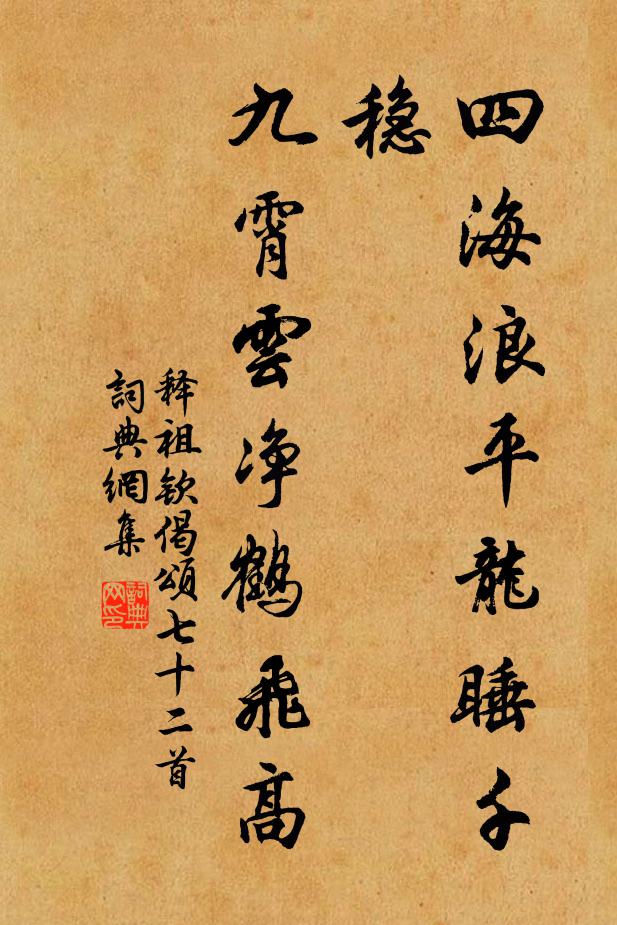 四海浪平龍睡千
稳
九霄雲净鶴飛高
释祖钦偈頌七十二首
詞典網集
詞典
网印